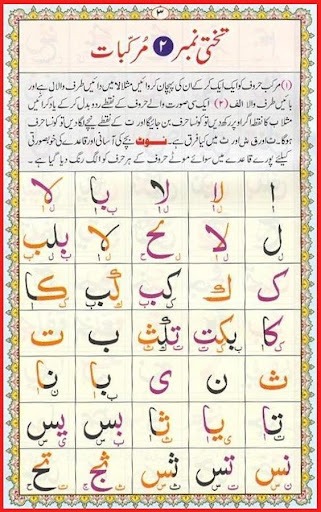 ۳
تختی نمبر ۲ مُرکّبات
(۱) مرکب حروف کو ایک ایک کر کے ان کی پہچان کروائیں مثلاً لا میں دائیں طرف والا ل ہے اور
بائیں طرف والا الف (۲) ایک سی صورت والے حروف کے نقطے ردوبدل کر کے یاد کرائیں
مثلاً ب کا نقطہ اگر اوپر دیں تو کونسا حرف بن جائیگا اور ت کے نقطے نیچے لگا دیں تو کونسا حرف
ہوگا۔ ت اور ق ش اور ث میں کیا فرق ہے۔ نوٹ بچے کی آسانی اور قاعدے کی خوبصورتی
کیلئے پورے قاعدے میں سوائے موٹے حروف کے ہر حرف کو الگ رنگ دیا گیا ہے۔
ا ا لا با لا
ل لا لح لا بلب
ک ك كب كب كا
كا بكت تلث ب ت
ث ن ی با نا
تا يا ثا بس يس
نس تس ثس ثج تح